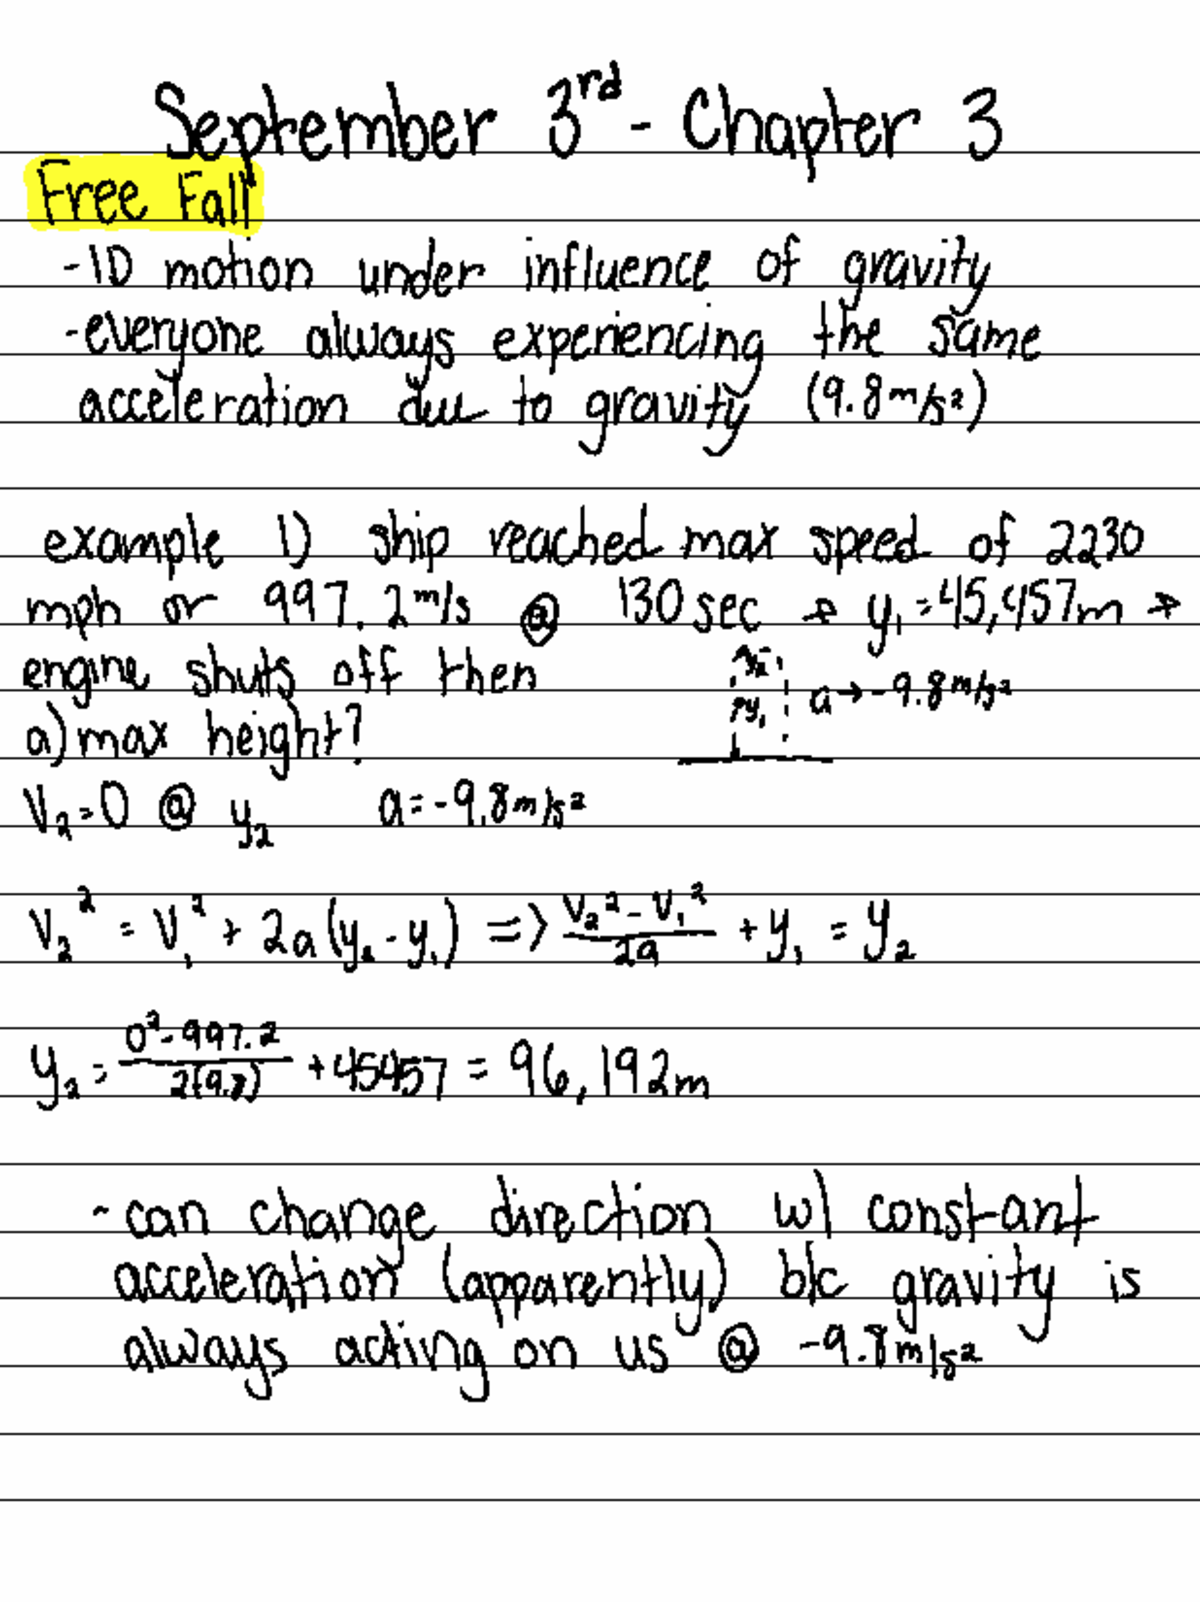 September 3rd - Chapter 3
Free Fall
-1D motion under influence of gravity
-everyone always experiencing the same
acceleration due to gravity (9.8m/s²)
example 1) ship reached max speed of 2230
mph or 997.2m/s @ 130 sec → y₁=45,457m →
engine shuts off then
y₂
y₁ a→-9.8m/s²
a) max height?
V₂=0 @ y₂ a=-9.8m/s²
V₂² = V₁² + 2a(y₂-y₁) => (V₂²-V₁²)/2a + y₁ = y₂
y₂ = (0²-997.2)/2(9.8) + 45457 = 96,192m
-can change direction w/ constant
acceleration (apparently) b/c gravity is
always acting on us @ -9.8m/s²